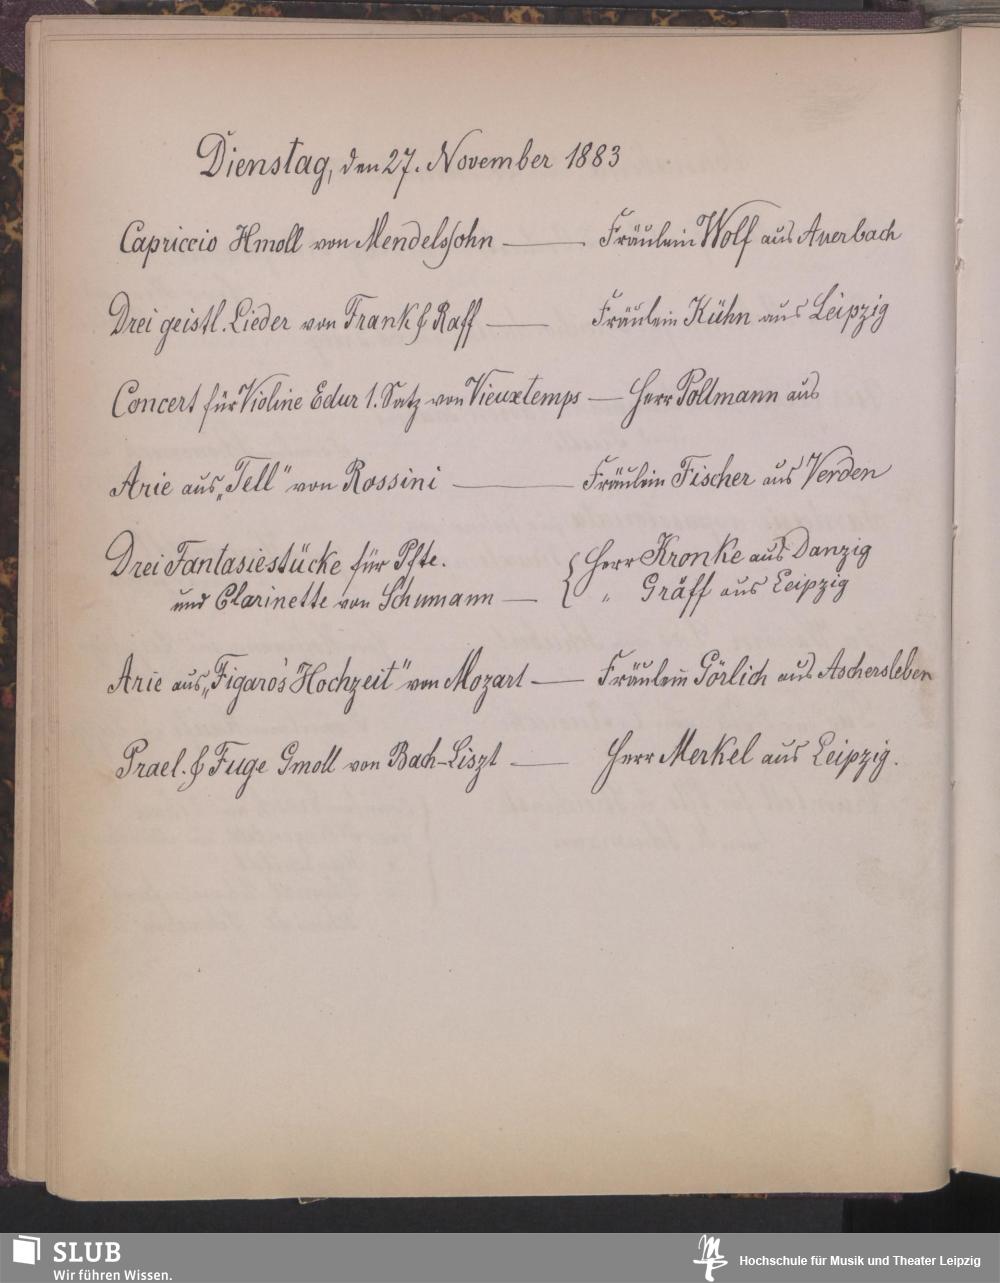 Dienstag, den 27. November 1883
Capriccio Hmoll von Mendelssohn — Fräulein Wolf aus Auerbach
Drei geistl. Lieder von Frank & Raff — Fräulein Kühn aus Leipzig
Concert für Violine Edur 1. Satz von Vieuxtemps — Herr Poltmann aus
Arie aus „Tell" von Rossini — Fräulein Fischer aus Verden
Drei Fantasiestücke für Pfte. { Herr Kronke aus Danzig
und Clarinette von Schumann — „ Gräff aus Leipzig
Arie aus „Figaro's Hochzeit" von Mozart — Fräulein Görlich aus Aschersleben
Prael. & Fuge Gmoll von Bach-Liszt — Herr Merkel aus Leipzig.
SLUB
Wir führen Wissen.
Hochschule für Musik und Theater Leipzig